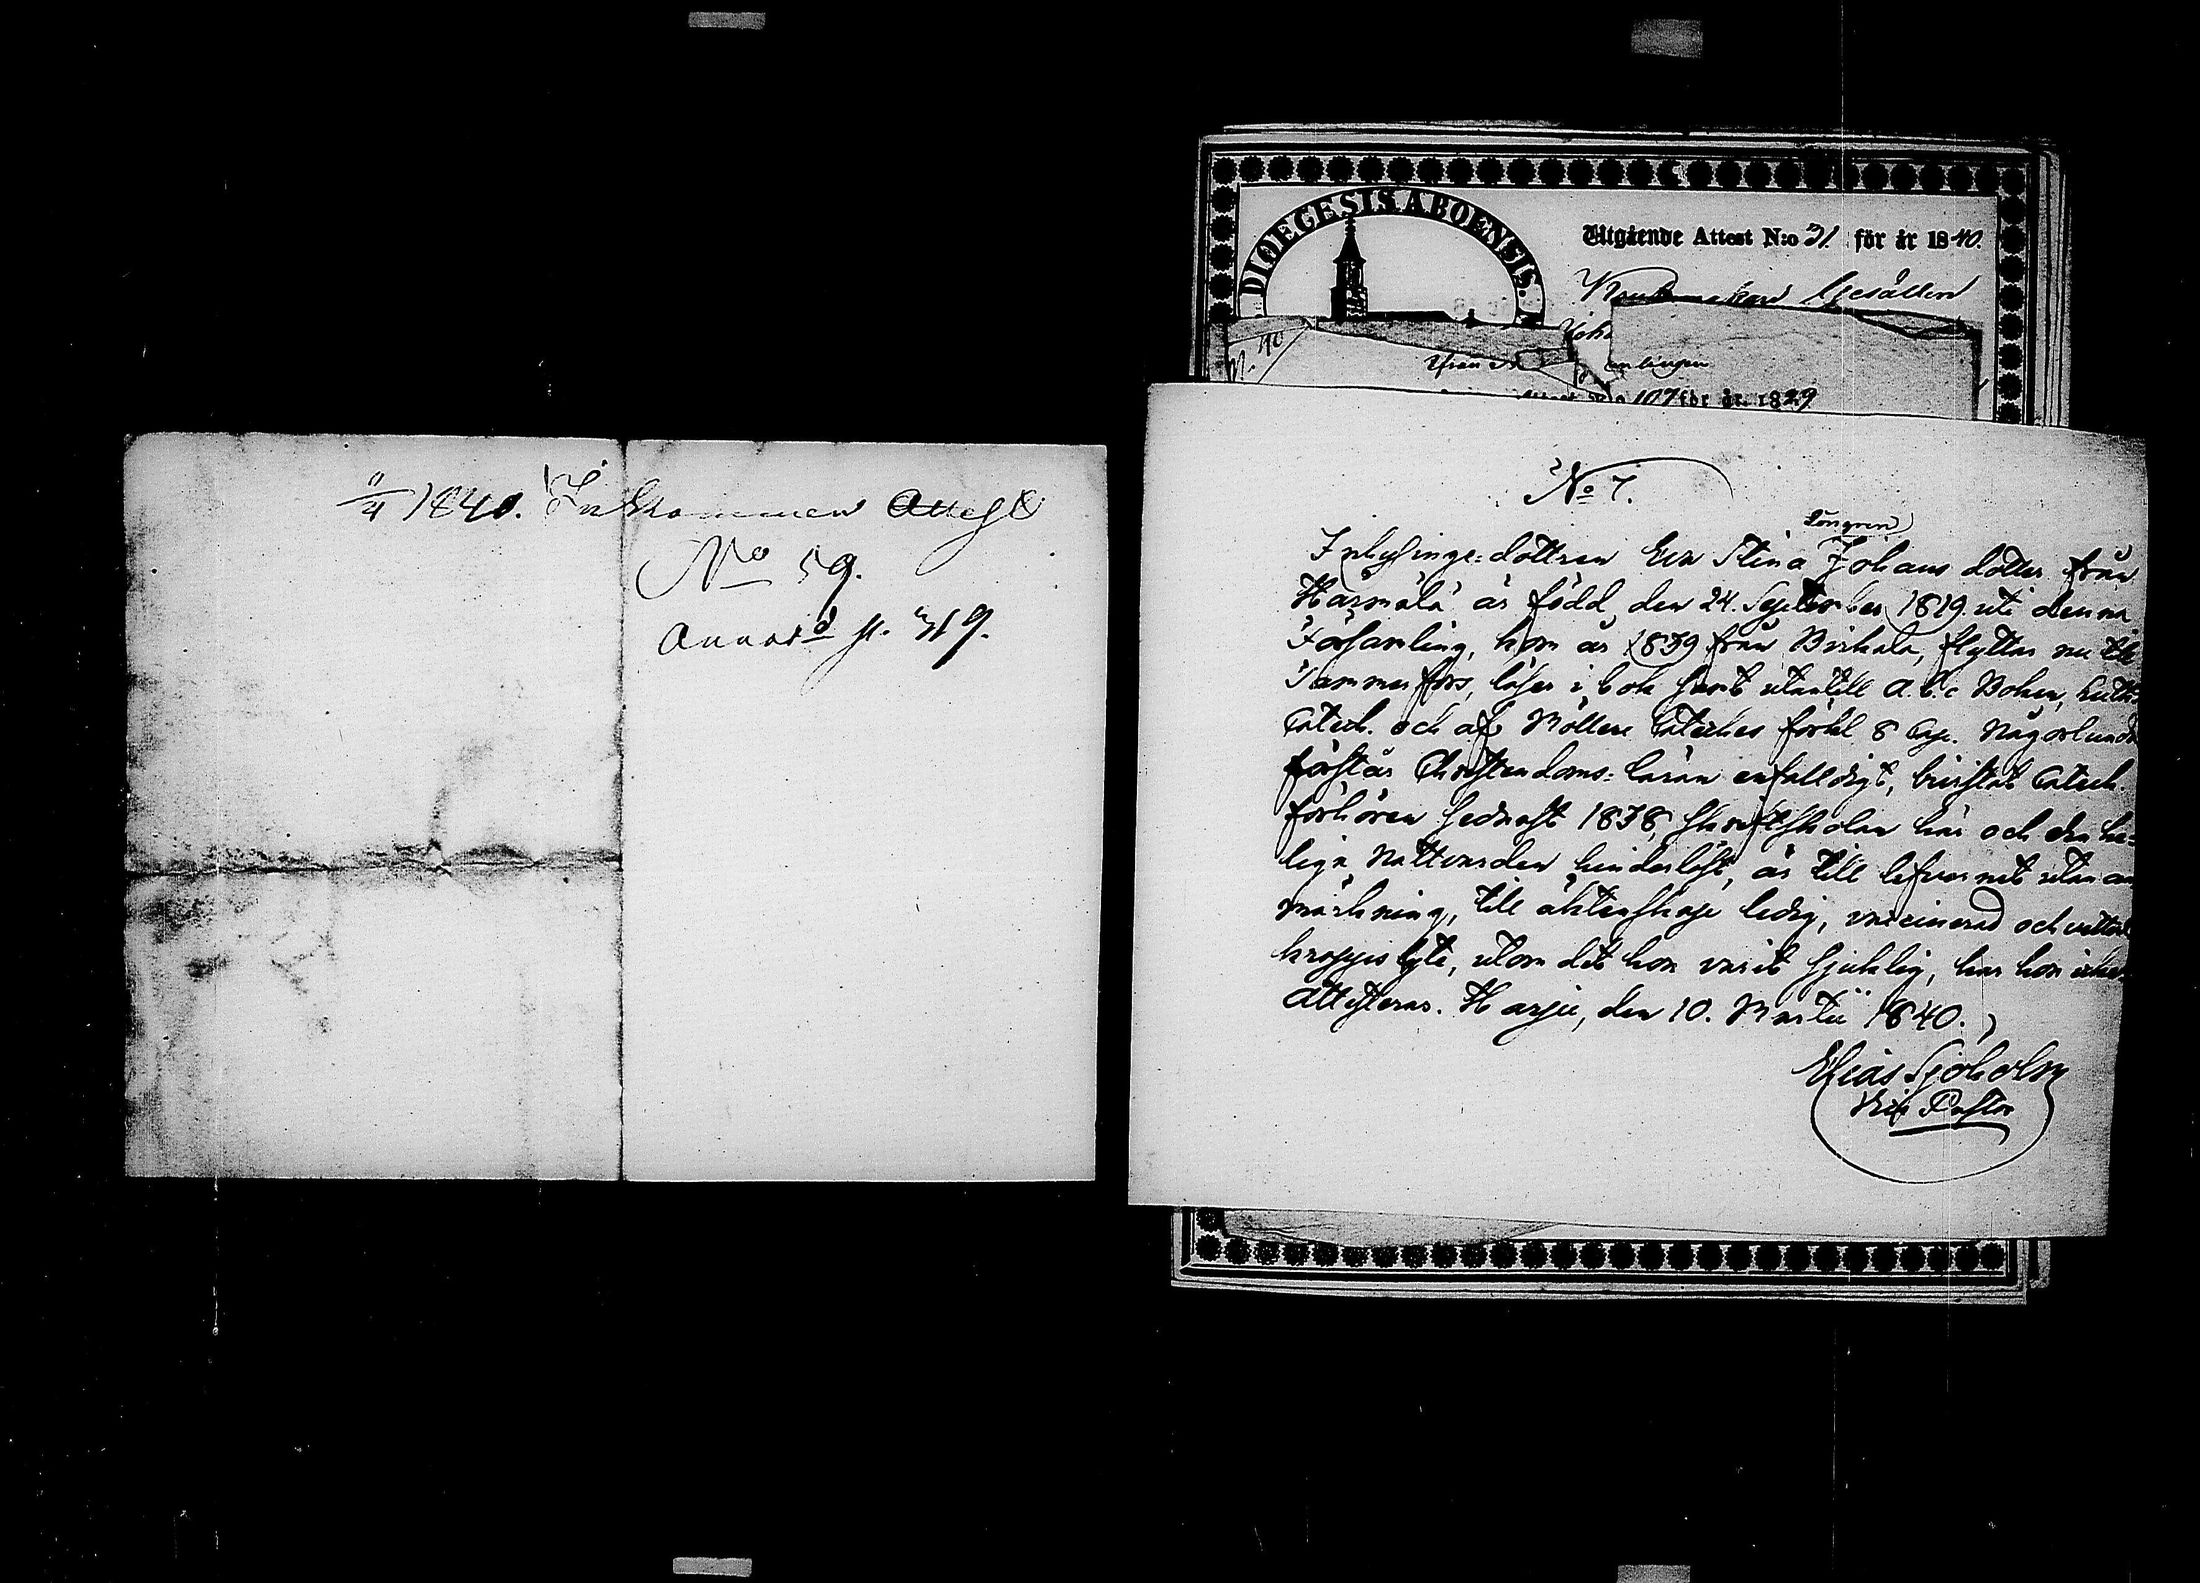 11/4 1840. Inkommen Attest
No 59.
Annot:d p. 319.
DIOECESIS ABOENSIS.
Utgående Attest N:o 31 för år 1840.
Gesällen
N. 40
Från
Attest N:o 107 för år 1829
No 7.
Löngren
Inhysinge-dottren Eva Stina Johans dotter från
Härmälä är född den 24. September 1819 uti denna
Församling, kom år 1839 från Birkala, flyttar nu till
Tammerfors, läser i bok samt utantill A.b.c Boken, Luth:
Catech. och af Möllers Cateches förkl 8 Cap. Någorlunda
förstår Christendoms-läran enfalldigt, bevistat Catech.
förhören sednast 1838, skriftskolan här och den he-
liga Nattvarden hinderlöst, är till lefvernet utan an
märkning, till äktenskap ledig, vaccinerad och vetterl
kroppslyte, utom det hon varit sjuklig, har hon icke.
Attesteras. Harju, den 10. Martii 1840.
Elias Sjöholm
Vice Pastor